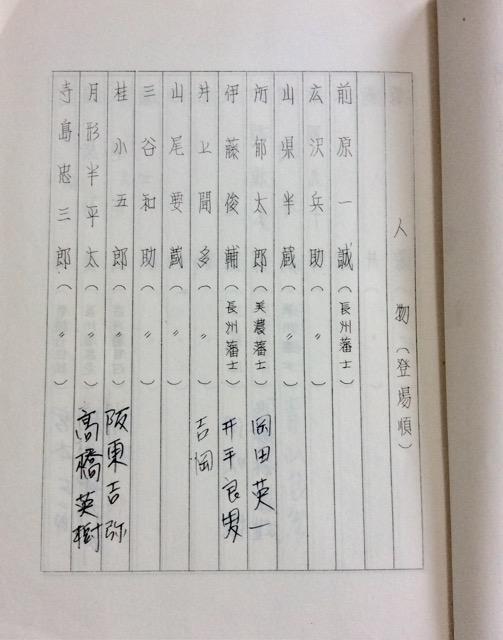 人物（登場順）
前原一誠（長州藩士）
広沢兵助（〃）
山県半蔵（〃）
所郁太郎（美濃藩士）岡田英一
伊藤俊輔（長州藩士）井平良男
井上聞多（〃）吉岡
山尾要蔵（〃）
三谷和助（〃）
桂小五郎（〃）阪東吉弥
月形半平太（〃）高橋英樹
寺島忠三郎（〃）